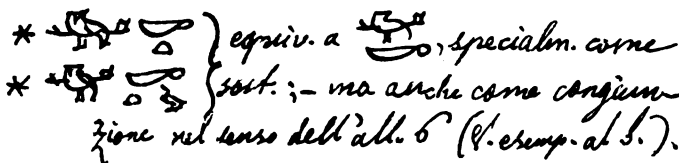 * } equiv. a , specialm. come
* } sost.; – ma anche come congiun-
zione nel senso dell'all. 6 (V. esemp. al